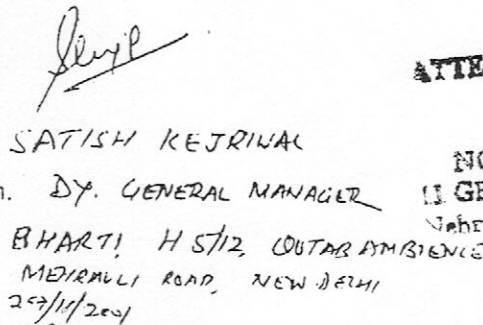 ATTE
SATISH KEJRIWAL
DY. GENERAL MANAGER
BHARTI H 5/12, QUTAB AMBIENCE
MEHRAULI ROAD, NEW DELHI